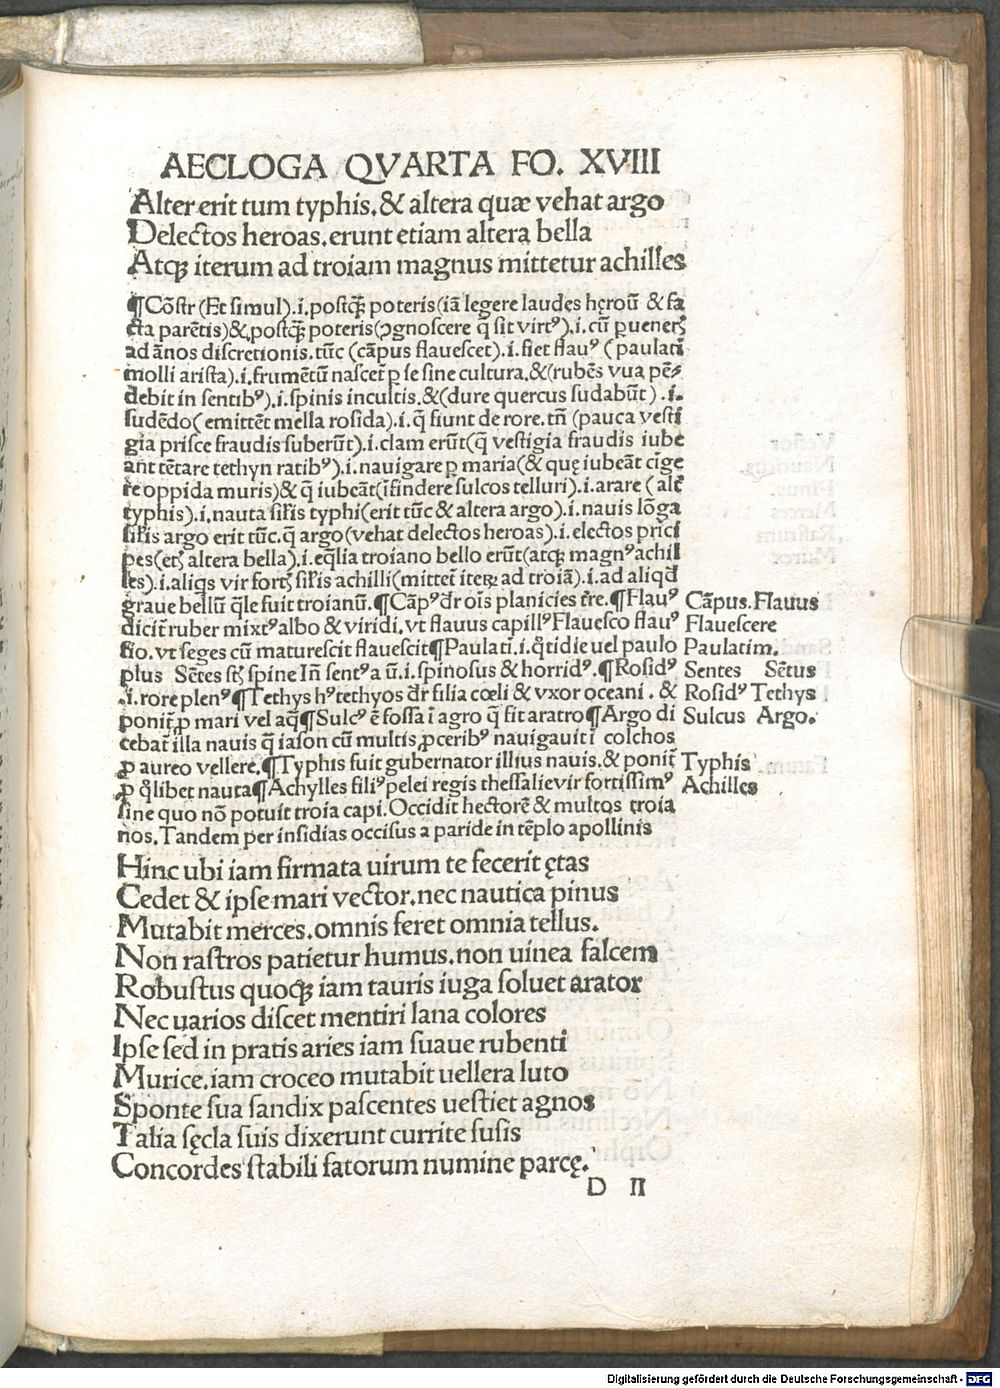 AECLOGA QVARTA FO. XVIII
Alter erit tum typhis.& altera quæ vehat argo
Delectos heroas.erunt etiam altera bella
Atqꝫ iterum ad troiam magnus mittetur achilles
¶Cōstr (Et simul).i.postqꝫ̄ poteris(iā legere laudes heroū & fa
cta parētis)&,postqꝫ̄ poteris(ꝯgnoscere q̄ sit virtꝰ).i.cū ꝑueneris
ad ānos discretionis.tūc (cāpus flauescet).i.fiet flauꝰ (paulatī
molli arista).i.frumētū nascet̄ ꝑ se sine cultura.&(rubēs vua pē⸗
debit in sentibꝰ).i.spinis incultis.&(dure quercus sudabūt) .i.
sudēdo( emittēt mella rosida).i.q̄ fiunt de rore.tn̄ (pauca vesti
gia prisce fraudis suberūt).i.clam erūt(q̄ vestigia fraudis iube
ant tētare tethyn ratibꝰ).i.nauigare ꝑ maria(& quę iubeāt cīge
re oppida muris)& q̄ iubeāt(īfindere sulcos telluri).i.arare ( alt̄
typhis).i.nauta sił̄is typhi(erit tūc & altera argo).i.nauis lōga
sił̄is argo erit tūc.q̄ argo(vehat delectos heroas).i.electos prīci
pes(etꝫ altera bella).i.eq̄lia troiano bello erūt(atqꝫ magnꝰ achil
les).i.aliqs vir fortꝫ sił̄is achilli(mittet̄ iteꝝ ad troiā).i.ad aliqd̄
graue bellū q̄le fuit troianū.¶Cāpꝰ dr̄ oīs planicies tr̄e.¶Flauꝰ
dicit̄ ruber mixtꝰ albo & viridi.vt flauus capillꝰ Flauesco flauꝰ
fio.vt seges cū maturescit flauescit¶Paulatī.i.q̄tidie vel paulo
plus Sētes stꝫ spine In̄ sentꝰ a ū.i.spinosus & horridꝰ.¶Rosidꝰ
.i.rore plenꝰ¶Tethys hꝰ tethyos dr̄ filia cœli & vxor oceani . &
ponit̄ ꝓ mari vel aq̄¶Sulcꝰ ē fossa ī agro q̄ fit aratro¶Argo di
cebat̄ illa nauis q̄ iason cū multis ꝓceribꝰ nauigauit ī colchos
ꝓ aureo vellere.¶Typhis fuit gubernator illius nauis.& ponit̄
ꝓ q̄libet nauta¶Achylles filiꝰ pelei regis thessalie vir fortissimꝰ
sine quo nō potuit troia capi.Occidit hectorē & multos troia
nos.Tandem per insidias occisus a paride in tēplo apollinis
Cāpus.Flauus
Flauescere
Paulatim.
Sentes Sētus
Rosidꝰ Tethys
Sulcus Argo.
Typhis
Achilles
Hinc ubi iam firmata uirum te fecerit ętas
Cedet & ipse mari vector.nec nautica pinus
Mutabit merces.omnis feret omnia tellus.
Non rastros patietur humus.non uinea falcem
Robustus quoqꝫ iam tauris iuga soluet arator
Nec uarios discet mentiri lana colores
Ipse sed in pratis aries iam suaue rubenti
Murice.iam croceo mutabit uellera luto
Sponte sua sandix pascentes uestiet agnos
Talia sęcla suis dixerunt currite fusis
Concordes stabili fatorum numine parcę.
D II
Digitalisierung gefördert durch die Deutsche Forschungsgemeinschaft - DFG